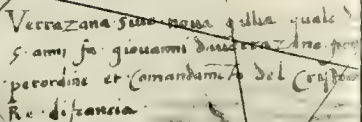 Verrazana sive nova gallia quale d
5 anni fa giovanni da verrazano
per ordine et Comandamto del Crystia
Re di francia